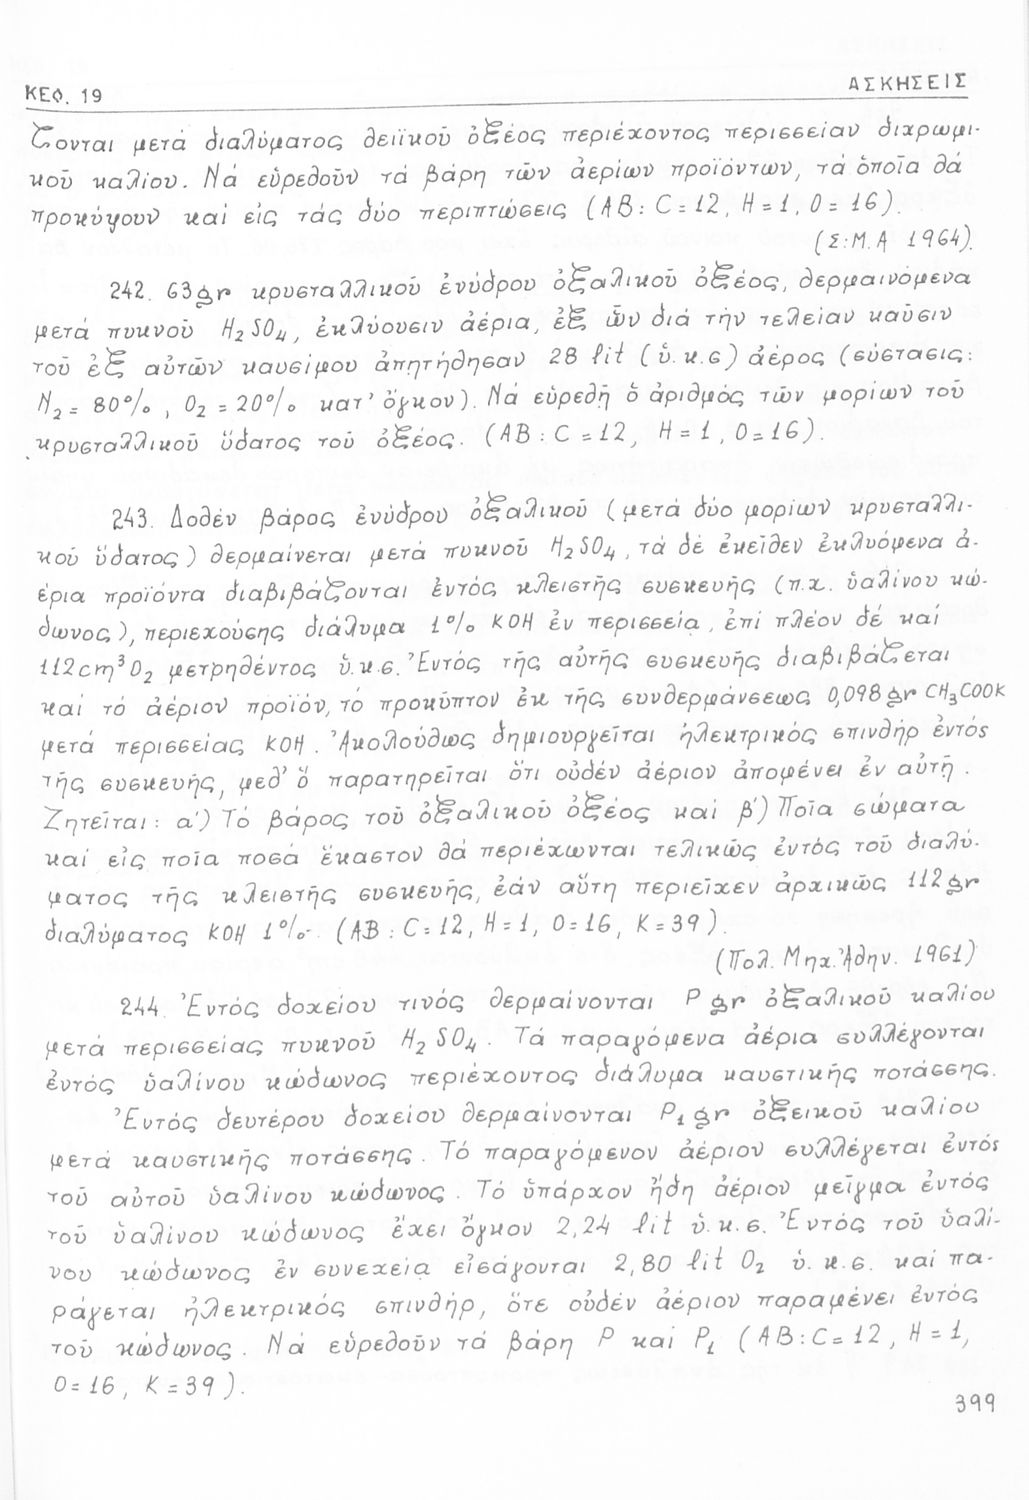 ΚΕΦ. 19
ΑΣΚΗΣΕΙΣ
ζονται μετά διαλύματος θειϊκοῦ ὀξέος περιέχοντος περισσείαν διχρωμι-
κοῦ καλίου. Νά εὑρεθοῦν τά βάρη τῶν ἀερίων προϊόντων, τά ὁποῖα θά
προκύψουν καί εἰς τάς δύο περιπτώσεις (ΑΒ: C = 12, Η = 1, Ο = 16).
(Σ:Μ.Α 1964).
242. 63gr κρυσταλλικοῦ ἐνύδρου ὀξαλικοῦ ὀξέος, θερμαινόμενα
μετά πυκνοῦ H₂SO₄, ἐκλύουσιν ἀέρια, ἐξ ὧν διά τήν τελείαν καῦσιν
τοῦ ἐξ αὐτῶν καυσίμου ἀπητήθησαν 28 lit (ὑ.κ.σ) ἀέρος (σύστασις:
N₂ = 80%, O₂ = 20% κατ' ὄγκον). Νά εὑρεθῇ ὁ ἀριθμός τῶν μορίων τοῦ
κρυσταλλικοῦ ὕδατος τοῦ ὀξέος. (ΑΒ: C = 12, H = 1, O = 16).
243. Δοθέν βάρος ἐνύδρου ὀξαλικοῦ (μετά δύο μορίων κρυσταλλι-
κοῦ ὕδατος) θερμαίνεται μετά πυκνοῦ H₂SO₄, τά δέ ἐκεῖθεν ἐκλυόμενα ἀ-
έρια προϊόντα διαβιβάζονται ἐντός κλειστῆς συσκευῆς (π.χ. ὑαλίνου κώ-
δωνος), περιεχούσης διάλυμα 1% ΚΟΗ ἐν περισσείᾳ, ἐπί πλέον δέ καί
112cm³ O₂ μετρηθέντος ὑ.κ.σ. Ἐντός τῆς αὐτῆς συσκευῆς διαβιβάζεται
καί τό ἀέριον προϊόν, τό προκύπτον ἐκ τῆς συνθερμάνσεως 0,098 gr CH₃COOK
μετά περισσείας ΚΟΗ. Ἀκολούθως δημιουργεῖται ἠλεκτρικός σπινθήρ ἐντός
τῆς συσκευῆς, μεθ' ὅ παρατηρεῖται ὅτι οὐδέν ἀέριον ἀπομένει ἐν αὐτῇ.
Ζητεῖται: α') Τό βάρος τοῦ ὀξαλικοῦ ὀξέος καί β') Ποῖα σώματα
καί εἰς ποῖα ποσά ἕκαστον θά περιέχωνται τελικῶς ἐντός τοῦ διαλύ-
ματος τῆς κλειστῆς συσκευῆς, ἐάν αὕτη περιεῖχεν ἀρχικῶς 112gr
διαλύματος ΚΟΗ 1%. (ΑΒ: C = 12, H = 1, O = 16, K = 39).
(Πολ. Μηχ. Ἀθην. 1961)
244. Ἐντός δοχείου τινός θερμαίνονται P gr ὀξαλικοῦ καλίου
μετά περισσείας πυκνοῦ H₂SO₄. Τά παραγόμενα ἀέρια συλλέγονται
ἐντός ὑαλίνου κώδωνος περιέχοντος διάλυμα καυστικῆς ποτάσσης.
Ἐντός δευτέρου δοχείου θερμαίνονται P₁ gr ὀξεικοῦ καλίου
μετά καυστικῆς ποτάσσης. Τό παραγόμενον ἀέριον συλλέγεται ἐντός
τοῦ αὐτοῦ ὑαλίνου κώδωνος. Τό ὑπάρχον ἤδη ἀέριον μεῖγμα ἐντός
τοῦ ὑαλίνου κώδωνος ἔχει ὄγκον 2,24 lit ὑ.κ.σ. Ἐντός τοῦ ὑαλί-
νου κώδωνος ἐν συνεχείᾳ εἰσάγονται 2,80 lit O₂ ὑ.κ.σ. καί πα-
ράγεται ἠλεκτρικός σπινθήρ, ὅτε οὐδέν ἀέριον παραμένει ἐντός
τοῦ κώδωνος. Νά εὑρεθοῦν τά βάρη P καί P₁ (ΑΒ: C = 12, H = 1,
O = 16, K = 39).
399